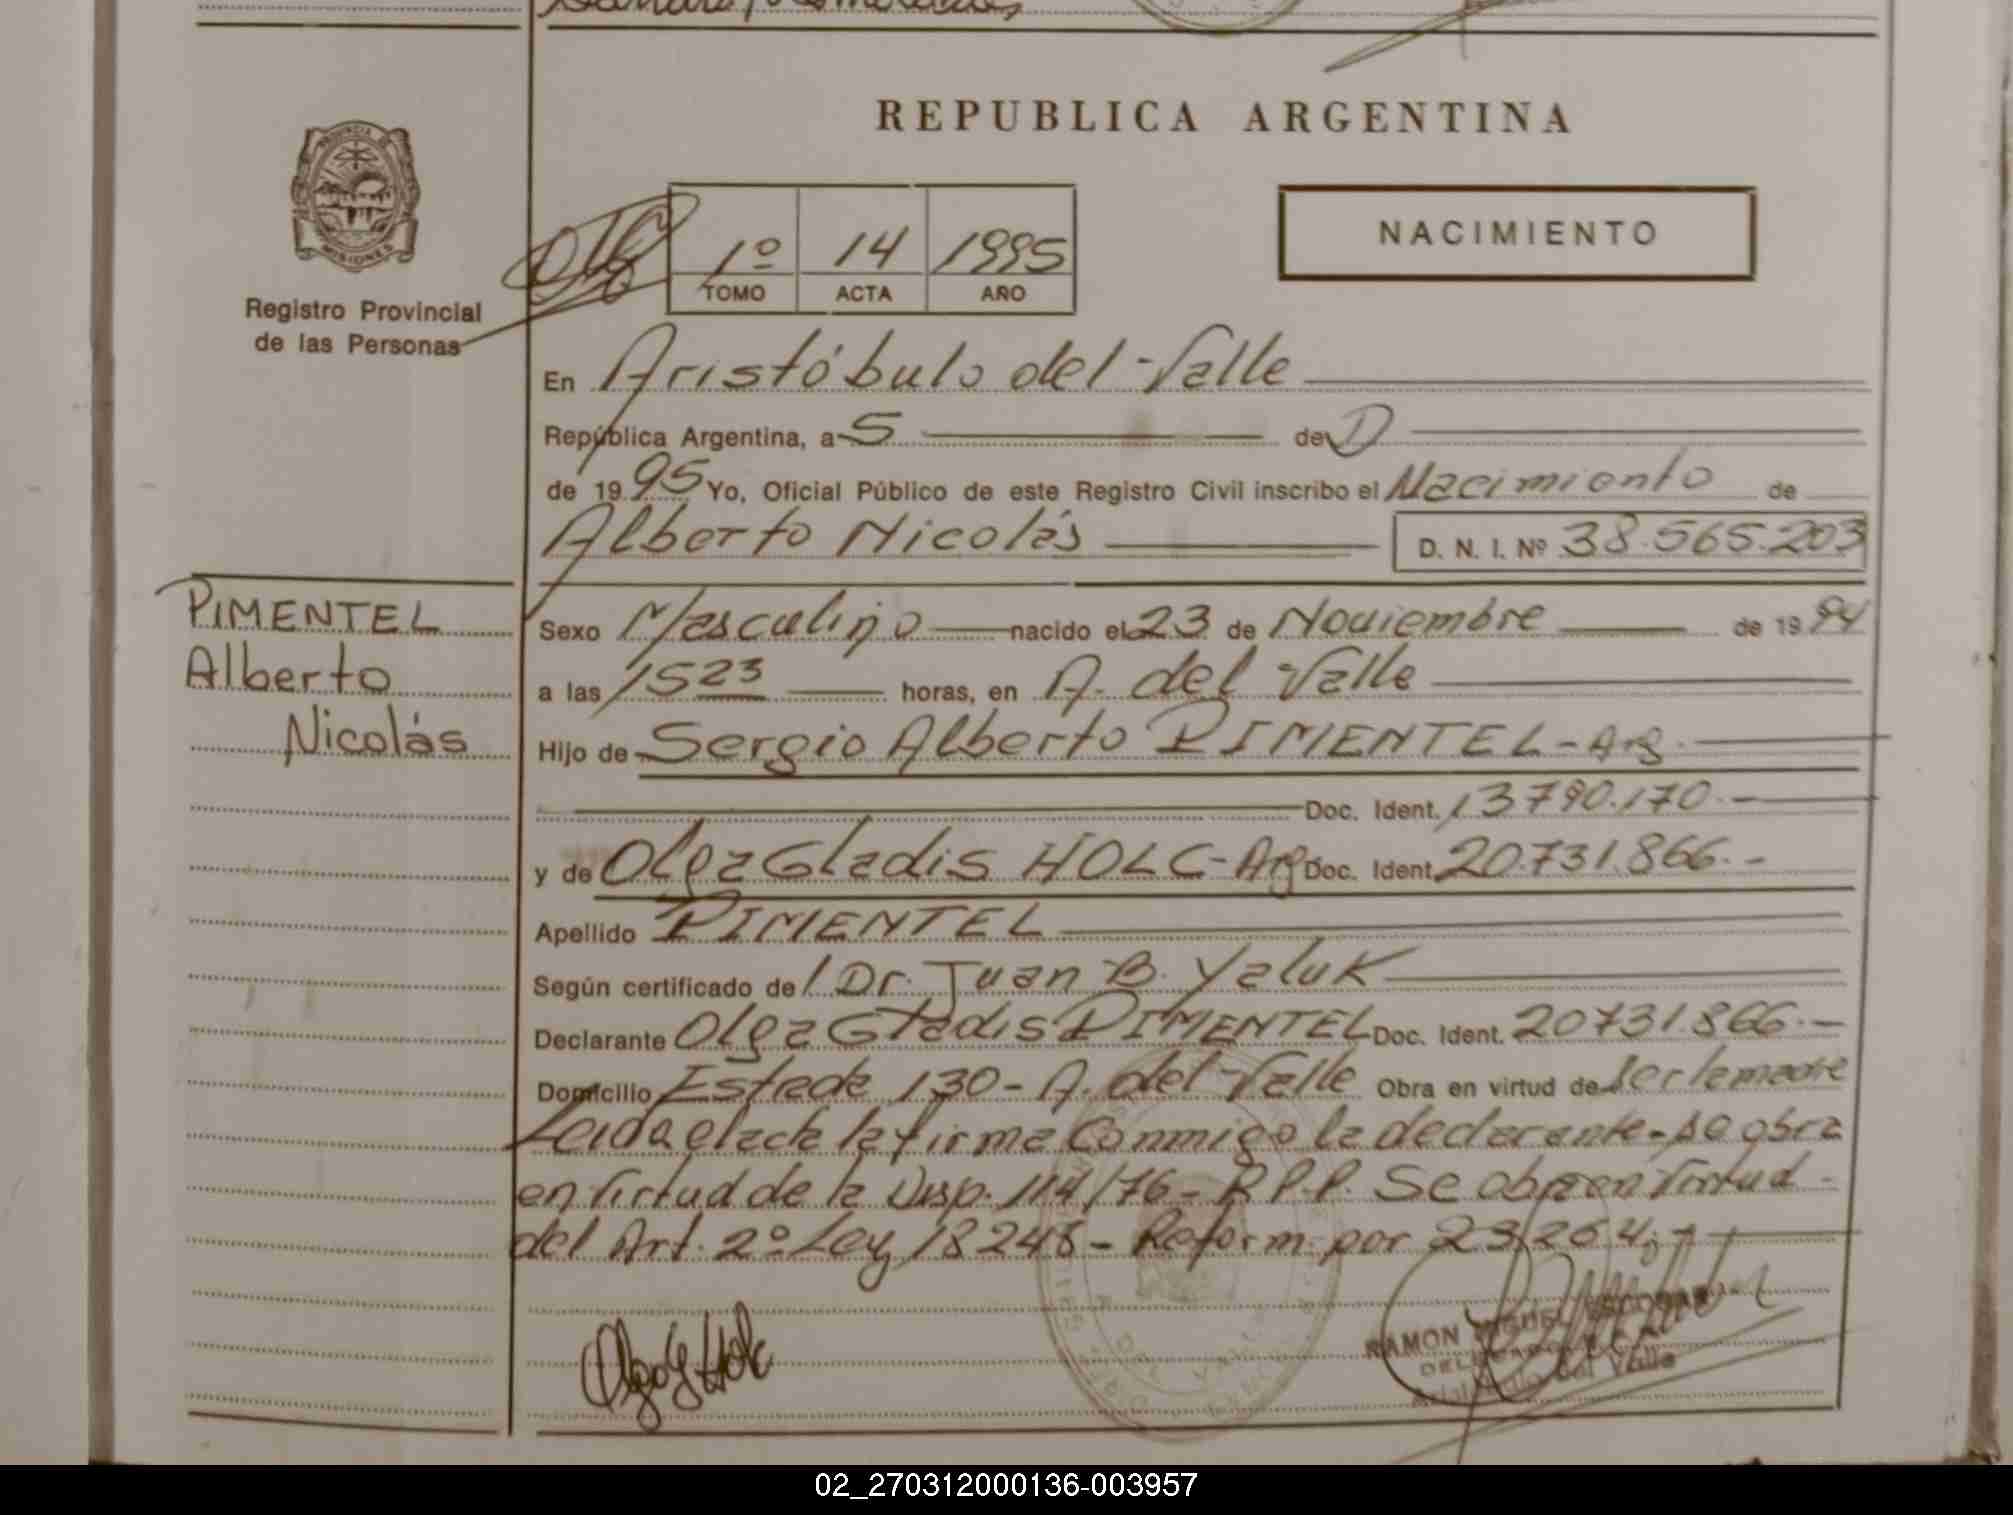 REPUBLICA ARGENTINA
PROVINCIA DE
MISIONES
Registro Provincial
de las Personas
1º 14 1995
TOMO ACTA AÑO
NACIMIENTO
En Aristóbulo del Valle
República Argentina, a 5 de D
de 1995 Yo, Oficial Público de este Registro Civil inscribo el Nacimiento de
Alberto Nicolás D. N. I. Nº 38.565.203
PIMENTEL
Alberto
Nicolás
Sexo Masculino nacido el 23 de Noviembre de 1994
a las 1523 horas, en A. del Valle
Hijo de Sergio Alberto PIMENTEL - Arg.
Doc. Ident. 13790.170.-
y de Olga Gladis HOLC - Arg Doc. Ident. 20.731.866.-
Apellido PIMENTEL
Según certificado de l Dr. Juan B. Yaluk
Declarante Olga Gladis PIMENTEL Doc. Ident. 20731.866.-
Domicilio 130 - A. del Valle Obra en virtud de ser la madre
Leida el acta la firma Conmigo la declarante - So obra
en Virtud de la Disp. 114/76 - R.P.P. Se obra en Virtud -
del Art. 2º Ley 18248 - Reform. por 23.264.-
Olga G Holc
RAMON MIGUEL ESCOBAR
DELEGADO R.C.A.
Aristóbulo del Valle
02_270312000136-003957